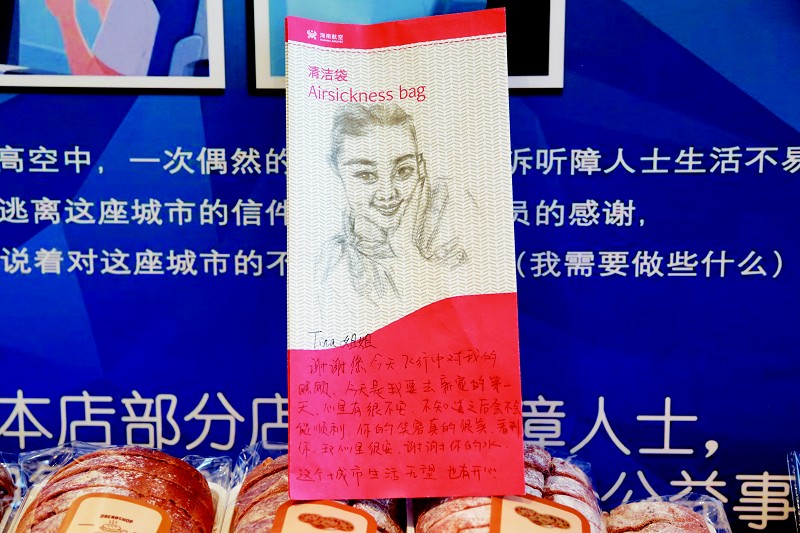 海南航空
清洁袋
Airsickness bag
高空中，一次偶然的
诉听障人士生活不易
逃离这座城市的信件
员的感谢，
说着对这座城市的不
（我需要做些什么）
Tina 姐姐
谢谢您今天飞行中对我的
照顾，今天是我要去
的第一
天，心里有很不安，不知道之后会不会
能顺利，你的笑容真的很美，看到
你，我心里很安，谢谢你的水
这个城市生活无望 也有开心
本店部分店
障人士，
公益事